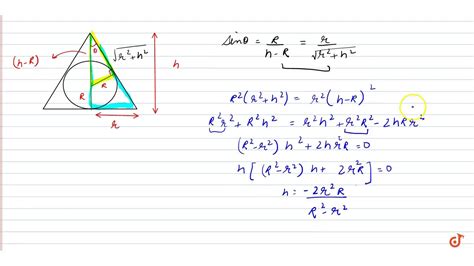 (h-R)
θ
√r²+h²
R
R
h
r
sinθ = R/(h-R) = r/√(r²+h²)
R²(r²+h²) = r²(h-R)²
R²r² + R²h² = r²h² + r²R² - 2hRr²
(R²-r²) h² + 2hr²R = 0
h[(R²-r²) h + 2r²R] = 0
h = -2r²R/(R²-r²)